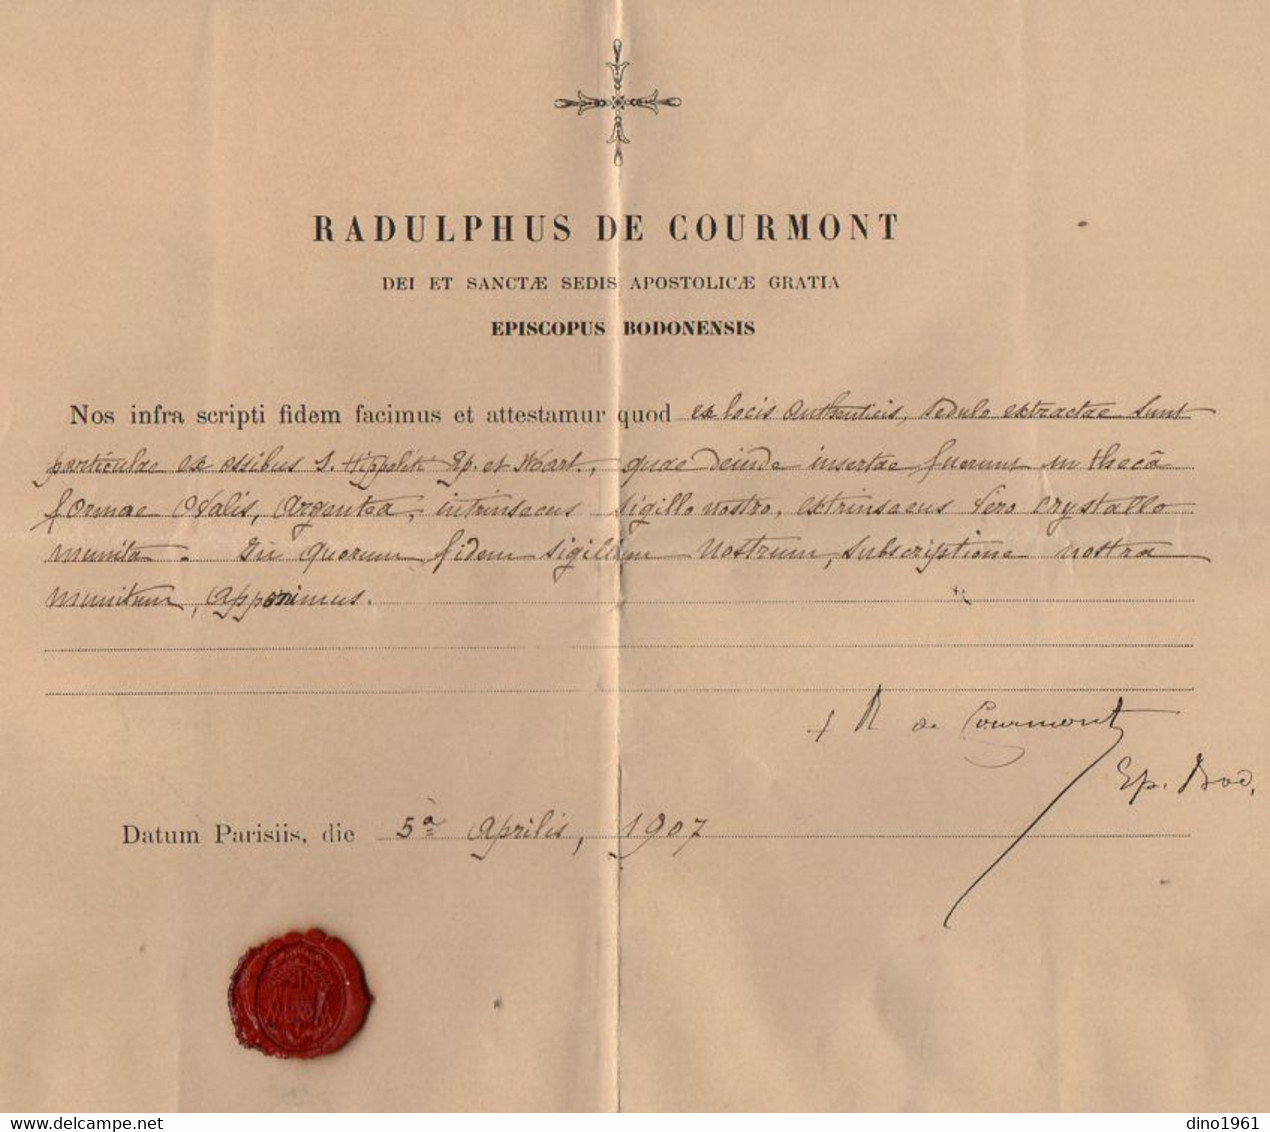 RADULPHUS DE COURMONT
DEI ET SANCTÆ SEDIS APOSTOLICÆ GRATIA
EPISCOPUS BODONENSIS
Nos infra scripti fidem facimus et attestamur quod ex locis authenticis, sedulo extractae sunt
particulae ex ossibus S. Hippoliti Ep. et Mart., quae deinde insertae fuerunt in thecâ
formae Ovalis, Argentea, intrinsecus sigillo nostro, extrinsecus vero crystallo
munita. In quorum fidem sigillum nostrum, subscriptione nostra
munitum, apponimus.
+ R de Courmont
Ep. Bod.
Datum Parisiis, die 5ª Aprilis, 1907
dino1961